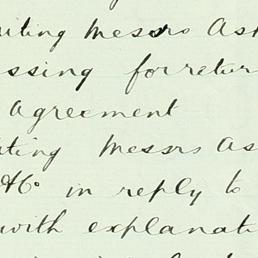 riting Messrs Ash
ssing for return
Agreement
iting Messrs As
&Co in reply to
with explanati